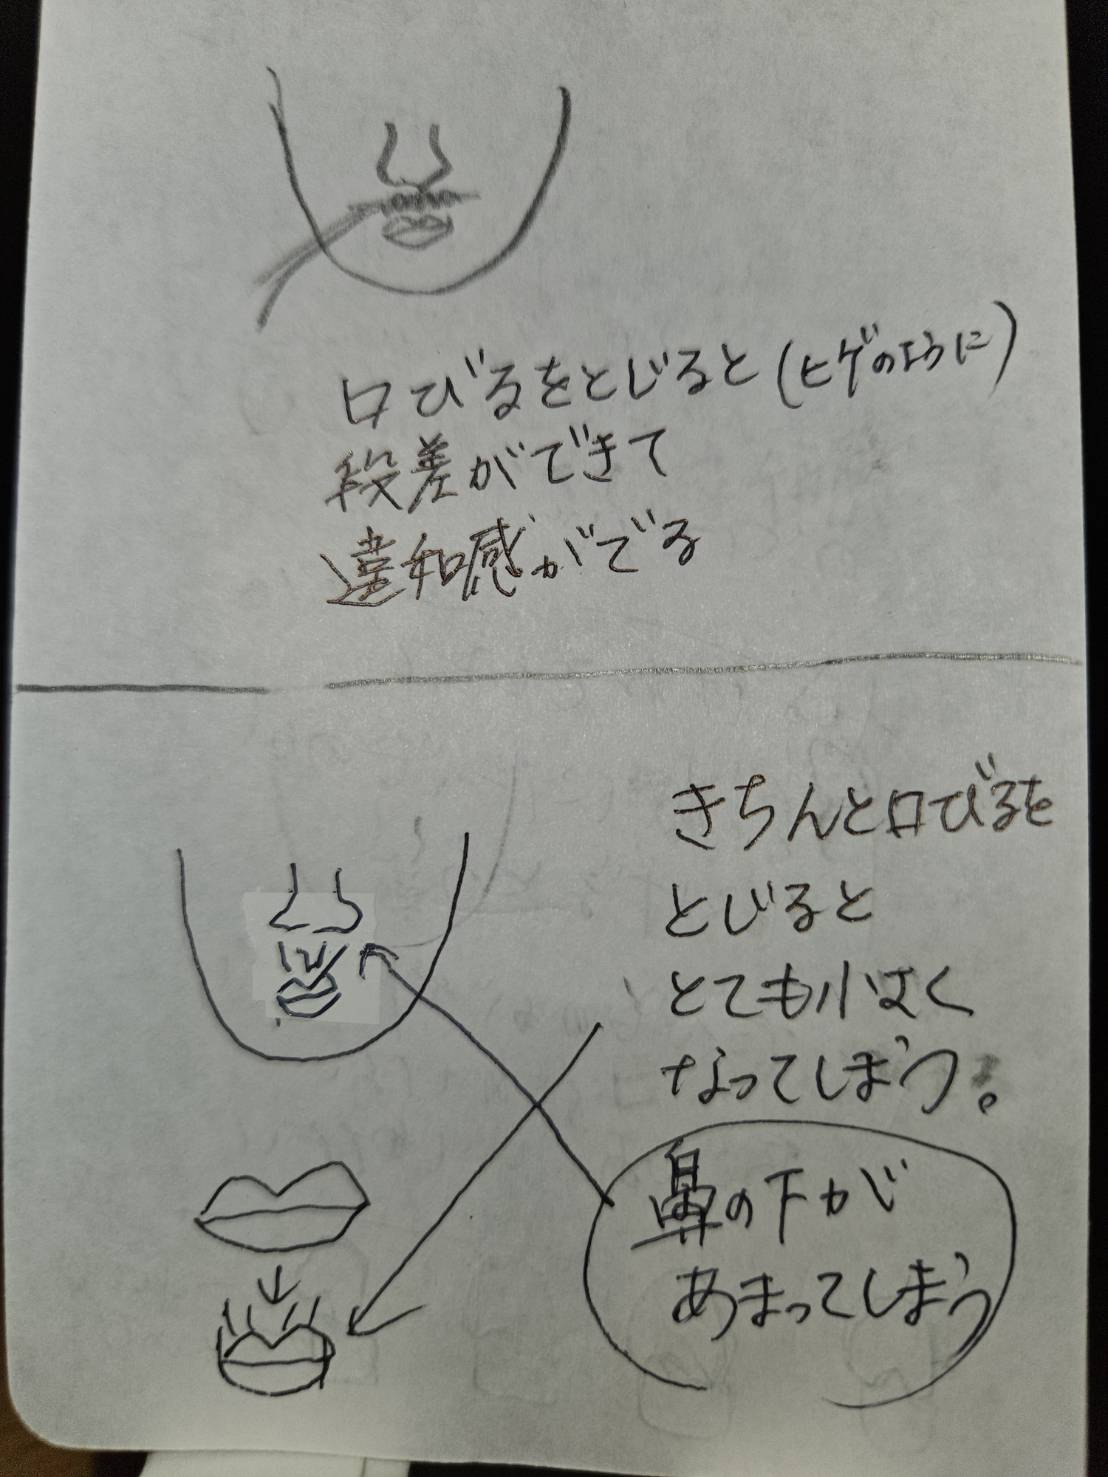 口びるをとじると(ヒゲのように)
段差ができて
違和感がでる
きちんと口びるを
とじると
とても小さく
なってしまう。
鼻の下が
あまってしまう